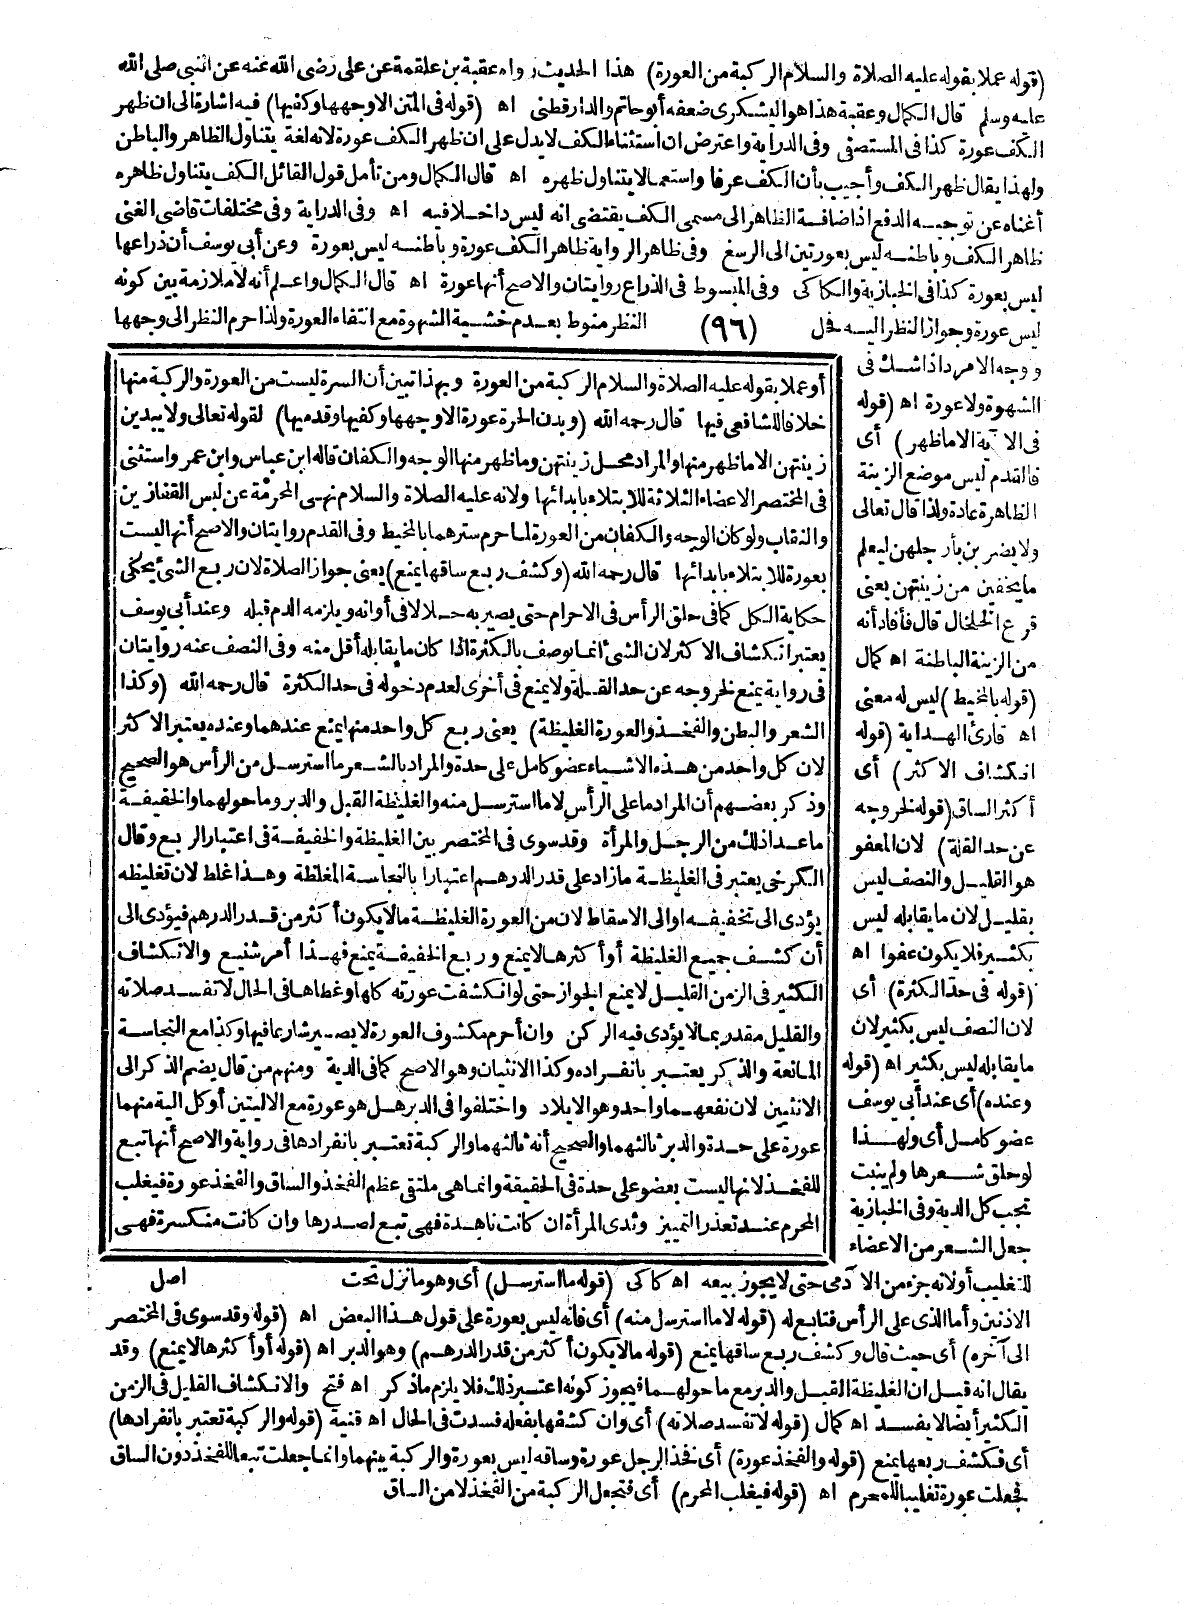 (قوله عملا بقوله عليه الصلاة والسلام الركبة من العورة) هذا الحديث رواه عقبة بن علقمة عن على رضى الله عنه عن النبى صلى الله
عليه وسلم قال الكمال وعقبة هذا هو اليشكرى ضعفه أبو حاتم والدارقطنى اه (قوله فى المتن الا وجهها وكفيها) فيه اشارة الى ان ظهر
الكف عورة كذا فى المستصفى وفى الدراية واعترض ان استثناء الكف لا يدل على ان ظهر الكف عورة لانه لغة يتناول الظاهر والباطن
ولهذا يقال ظهر الكف وأجيب بأن الكف عرفا واستعمالا يتناول ظهره اه قال الكمال ومن تأمل قول القائل الكف يتناول ظاهره
أغناه عن توجيه الدفع اذ اضافة الظاهر الى مسمى الكف يقتضى انه ليس داخلا فيه اه وفى الدراية وفى مختلفات قاضى الغنى
ظاهر الكف وباطنه ليس بعورتين الى الرسغ وفى ظاهر الرواية ظاهر الكف عورة وباطنه ليس بعورة وعن أبى يوسف أن ذراعها
ليس بعورة كذا فى الخبازية والكاكى وفى المبسوط فى الذراع روايتان والاصح أنها عورة اه قال الكمال واعلم أنه لا ملازمة بين كونه
ليس عورة وجواز النظر اليه فحل (٩٦) النظر منوط بعدم خشية الشهوة مع انتفاء العورة ولذا حرم النظر الى وجهها
ووجه الامرد اذا شك فى
الشهوة ولا عورة اه (قوله
فى الآية الا ما ظهر) أى
فالقدم ليس موضع الزينة
الظاهرة عادة ولذا قال تعالى
ولا يضربن بأرجلهن ليعلم
ما يخفين من زينتهن يعنى
قرع الخلخال قال فأفاد أنه
من الزينة الباطنة اه كمال
(قوله بالمخيط) ليس له معنى
اه قارئ الهداية (قوله
انكشاف الاكثر) أى
أكثر الساق (قوله لخروجه
عن حد القلة) لان المعفو
هو القليل والنصف ليس
بقليل لان ما يقابله ليس
بكثير فلا يكون عفوا اه
(قوله فى حد الكثرة) أى
لان النصف ليس بكثير لان
ما يقابله ليس بكثير اه (قوله
وعنده) أى عند أبى يوسف
عضو كامل أى ولهذا
لو حلق شعرها ولم ينبت
تجب كل الدية وفى الخبازية
جعل الشعر من الاعضاء
أو عملا بقوله عليه الصلاة والسلام الركبة من العورة وبهذا تبين أن السرة ليست من العورة والركبة منها
خلافا للشافعى فيها قال رحمه الله (وبدن الحرة عورة الا وجهها وكفيها وقدميها) لقوله تعالى ولا يبدين
زينتهن الا ما ظهر منها والمراد محل زينتهن وما ظهر منها الوجه والكفان قاله ابن عباس وابن عمر واستثنى
فى المختصر الاعضاء الثلاثة للابتلاء بابدائها ولانه عليه الصلاة والسلام نهى المحرمة عن لبس القفازين
والنقاب ولو كان الوجه والكفان من العورة لما حرم سترهما بالمخيط وفى القدم روايتان والاصح أنها ليست
بعورة للابتلاء بابدائها قال رحمه الله (وكشف ربع ساقها يمنع) يعنى جواز الصلاة لان ربع الشئ يحكى
حكاية الكل كما فى حلق الرأس فى الاحرام حتى يصير به حلالا فى أوانه ويلزمه الدم قبله وعند أبى يوسف
يعتبر انكشاف الاكثر لان الشئ انما يوصف بالكثرة اذا كان ما يقابله أقل منه وفى النصف عنه روايتان
فى رواية يمنع لخروجه عن حد القلة ولا يمنع فى أخرى لعدم دخوله فى حد الكثرة قال رحمه الله (وكذا
الشعر والبطن والفخذ والعورة الغليظة) يعنى ربع كل واحد منها يمنع عندهما وعنده يعتبر الاكثر
لان كل واحد من هذه الاشياء عضو كامل على حدة والمراد بالشعر ما استرسل من الرأس هو الصحيح
وذكر بعضهم أن المراد ما على الرأس لا ما استرسل منه والغليظة القبل والدبر وما حولهما والخفيفة
ما عدا ذلك من الرجل والمرأة وقد سوى فى المختصر بين الغليظة والخفيفة فى اعتبار الربع وقال
الكرخى يعتبر فى الغليظة ما زاد على قدر الدرهم اعتبارا بالنجاسة المغلظة وهذا غلط لان تغليظه
يؤدى الى تخفيفه او الى الاسقاط لان من العورة الغليظة ما لا يكون أكثر من قدر الدرهم فيؤدى الى
أن كشف جميع الغليظة أو أكثرها لا يمنع وربع الخفيفة يمنع فهذا أمر شنيع والانكشاف
الكثير فى الزمن القليل لا يمنع الجواز حتى لو انكشفت عورته كلها وغطاها فى الحال لا تفسد صلاته
والقليل مقدر بما لا يؤدى فيه الركن وان أحرم مكشوف العورة لا يصير شارعا فيها وكذا مع النجاسة
المانعة والذكر يعتبر بانفراده وكذا الانثيان وهو الاصح كما فى الدية ومنهم من قال يضم الذكر الى
الانثيين لان نفعهما واحد وهو الايلاد واختلفوا فى الدبر هل هو عورة مع الاليتين أو كل الية منهما
عورة على حدة والدبر ثالثهما والصحيح أنه ثالثهما والركبة تعتبر بانفرادها فى رواية والاصح أنها تبع
للفخذ لانها ليست بعضو على حدة فى الحقيقة وانما هى ملتقى عظم الفخذ والساق والفخذ عورة فيغلب
المحرم عند تعذر التمييز وثدى المرأة ان كانت ناهدة فهى تبع لصدرها وان كانت منكسرة فهى
للتغليب أو لانه جزء من الآدمى حتى لا يجوز بيعه اه كاكى (قوله ما استرسل) أى وهو ما نزل تحت اصل
الاذنين وأما الذى على الرأس فتابع له (قوله لا ما استرسل منه) أى فانه ليس بعورة على قول هذا البعض اه (قوله وقد سوى فى المختصر
الى آخره) أى حيث قال وكشف ربع ساقها يمنع (قوله ما لا يكون أكثر من قدر الدرهم) وهو الدبر اه (قوله أو أكثرها لا يمنع) وقد
يقال انه قيل ان الغليظة القبل والدبر مع ما حولهما فيجوز كونه اعتبر ذلك فلا يلزم ما ذكر اه فتح والانكشاف القليل فى الزمن
الكثير أيضا لا يفسد اه كمال (قوله لا تفسد صلاته) أى وان كشفها بفعله فسدت فى الحال اه قنية (قوله والركبة تعتبر بانفرادها)
أى فكشف ربعها يمنع (قوله والفخذ عورة) أى فخذ الرجل عورة وساقه ليس بعورة والركبة بينهما وانما جعلت تبعا للفخذ دون الساق
فجعلت عورة تغليبا للمحرم اه (قوله فيغلب المحرم) أى فتجعل الركبة من الفخذ لا من الساق